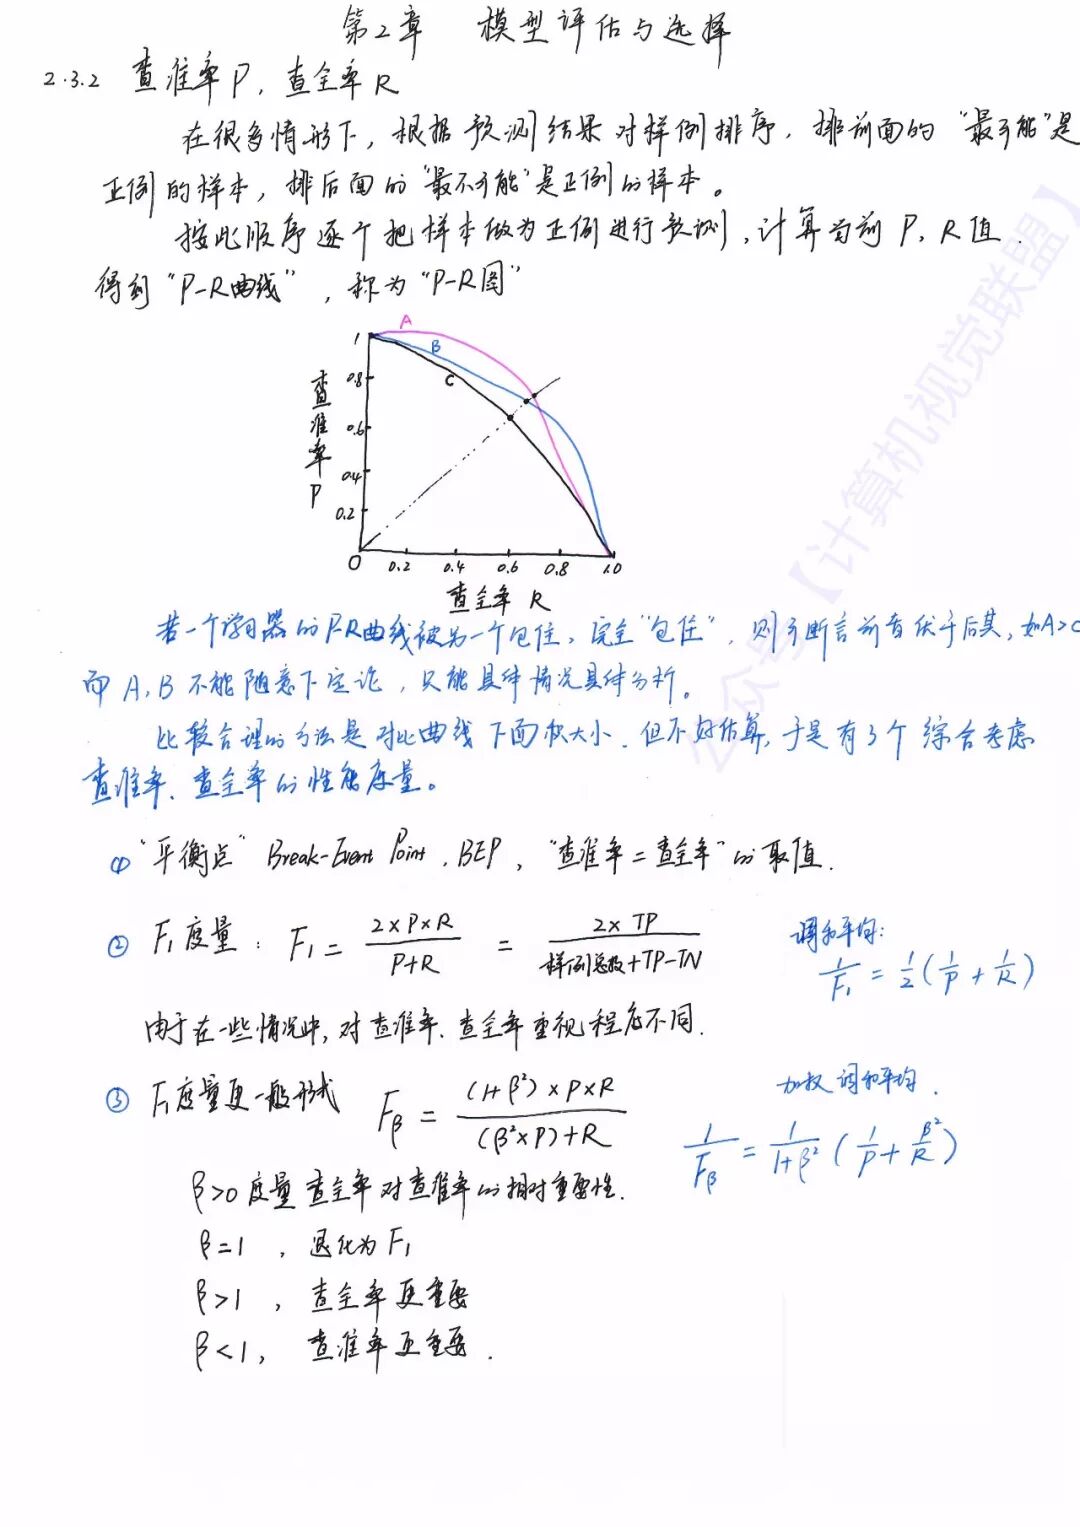 第2章 模型评估与选择
2.3.2 查准率P,查全率R
在很多情形下,根据预测结果对样例排序,排前面的"最可能"是
正例的样本,排后面的"最不可能"是正例的样本。
按此顺序逐个把样本做为正例进行预测,计算当前P,R值.
得到"P-R曲线",称为"P-R图"
A
B
C
1
0.8
0.6
0.4
0.2
查准率P
0 0.2 0.4 0.6 0.8 1.0
查全率 R
若一个学习器的P-R曲线被另一个包住,完全"包住",则可断言前者优于后其,如A>C
而A,B不能随意下定论,只能具体情况具体分析。
比较合理的方法是对比曲线下面积大小.但不好估算,于是有3个综合考虑
查准率、查全率的性能度量。
① "平衡点" Break-Event Point,BEP,"查准率=查全率"的取值.
② F₁度量: F₁ = 2×P×R / P+R = 2×TP / 样例总数+TP-TN
调和平均:
1/F₁ = 1/2 (1/P + 1/R)
由于在一些情况中,对查准率、查全率重视程度不同.
③ F₁度量更一般形式 Fβ = (1+β²)×P×R / (β²×P)+R
加权调和平均.
1/Fβ = 1/1+β² (1/P + β²/R)
β>0度量查全率对查准率的相对重要性.
β=1,退化为F₁
β>1,查全率更重要
β<1,查准率更重要.
公众号【计算机视觉联盟】